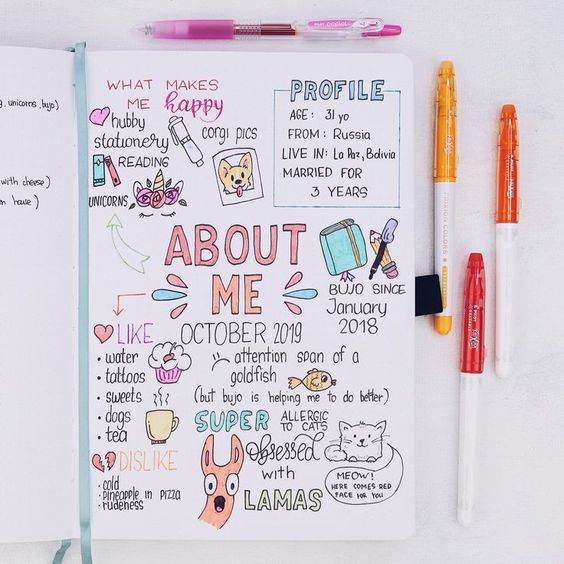 , unicorns, bujo)
with cheese)
WHAT MAKES
ME happy
hubby
stationery
corgi pics
READING
UNICORNS
PROFILE
AGE: 31 yo
FROM: Russia
LIVE IN: La Paz, Bolivia
MARRIED FOR
3 YEARS
ABOUT
ME
BUJO SINCE
January
2018
OCTOBER 2019
LIKE
• water
• tattoos
• sweets
• dogs
• tea
DISLIKE
• cold
• pineapple in pizza
• rudeness
attention span of a
goldfish
(but bujo is helping me to do better)
SUPER ALLERGIC
TO CATS
obsessed
with
LAMAS
MEOW!
HERE COMES RED
FACE FOR YOU